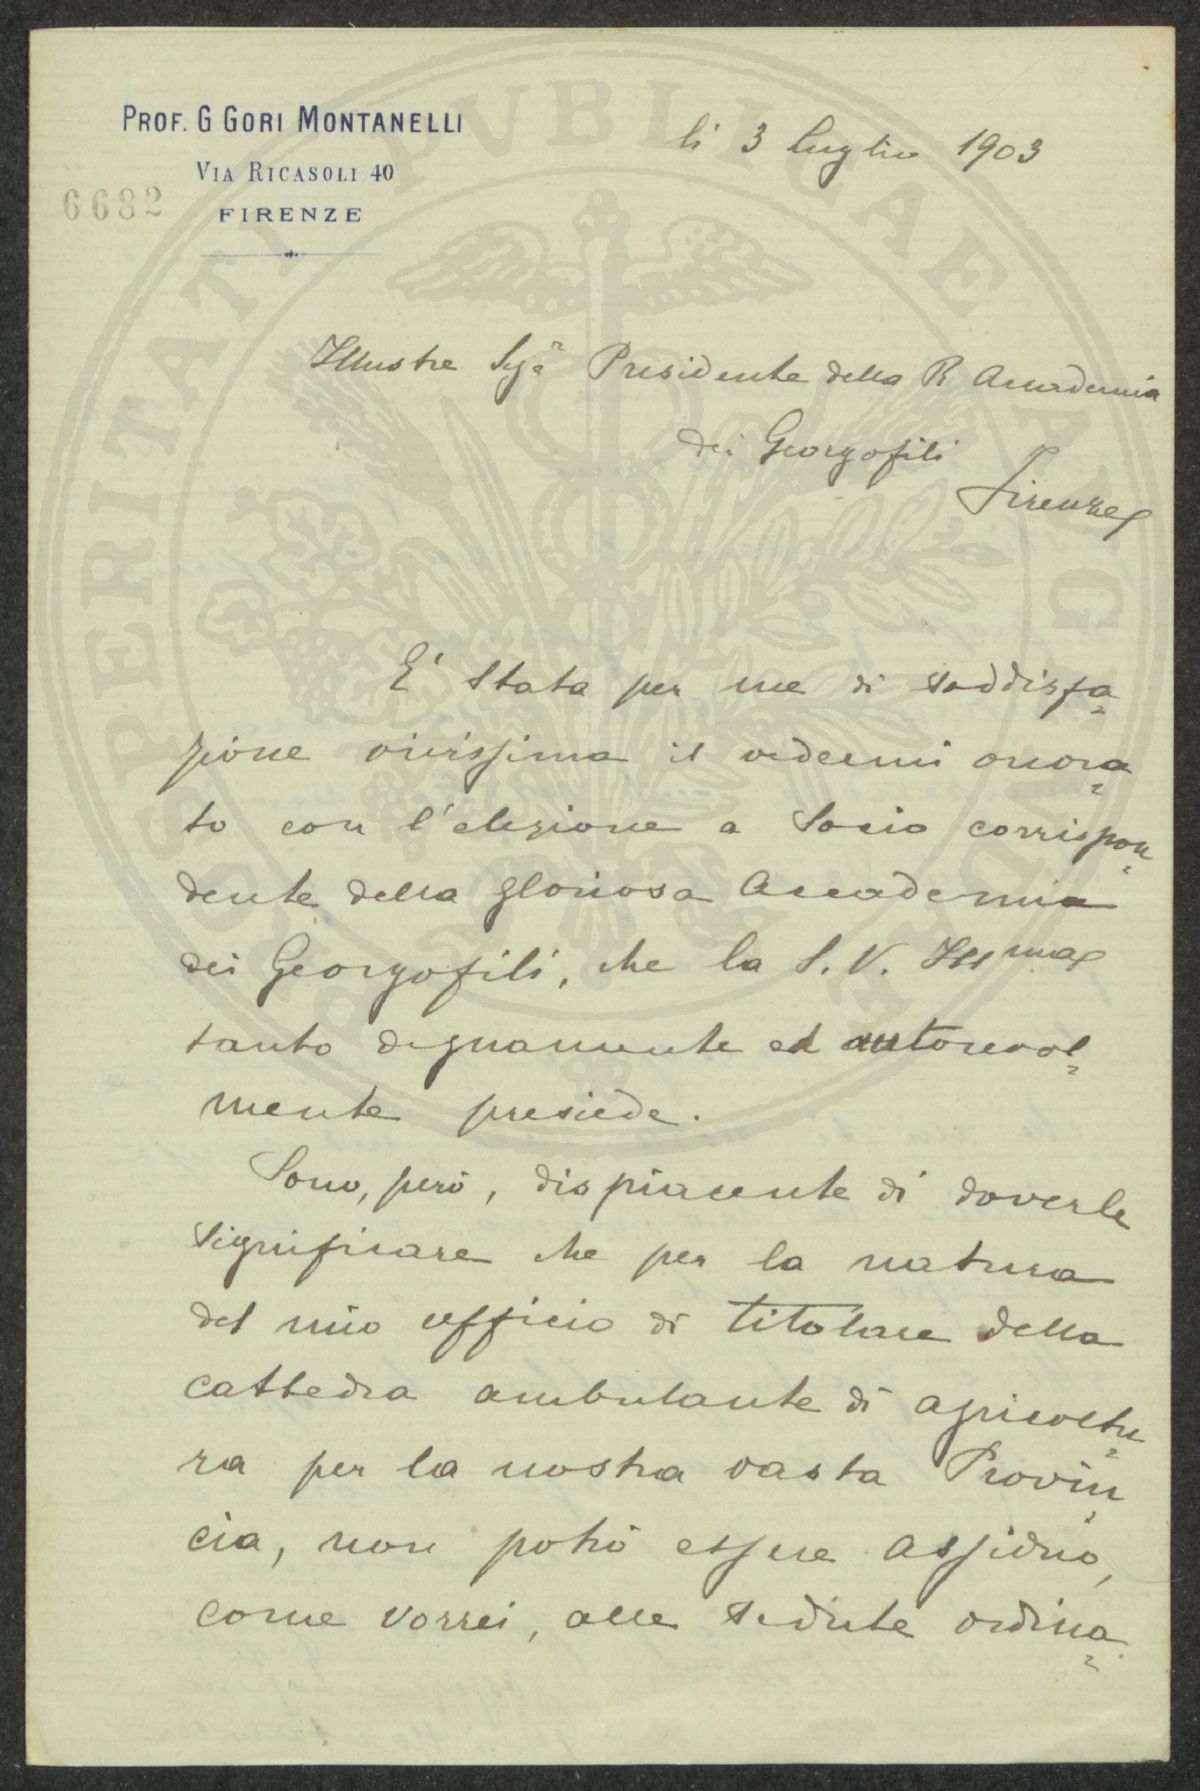 PROF. G GORI MONTANELLI
VIA RICASOLI 40
6682
FIRENZE
li 3 luglio 1903
Illustre Sigr Presidente della R Accademia
dei Georgofili
Firenze
E' stata per me di soddisfa=
zione vivissima il vedermi onora=
to con l'elezione a Socio corrispon=
dente della gloriosa Accademia
dei Georgofili, che la S. V. Illma
tanto degnamente ed autorevol=
mente presiede.
Sono, però, dispiacente di doverle
significare che per la natura
del mio ufficio di titolare della
cattedra ambulante di agricoltu=
ra per la nostra vasta Provin=
cia, non potrò essere assiduo,
come vorrei, alle sedute ordina=
PROSPERITATI PVBLICAE AVGENDAE